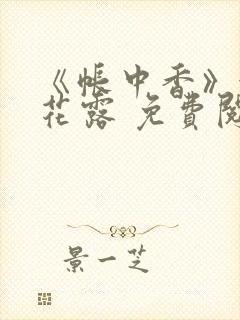 《帐中香》
花露 免費閱
景一芝